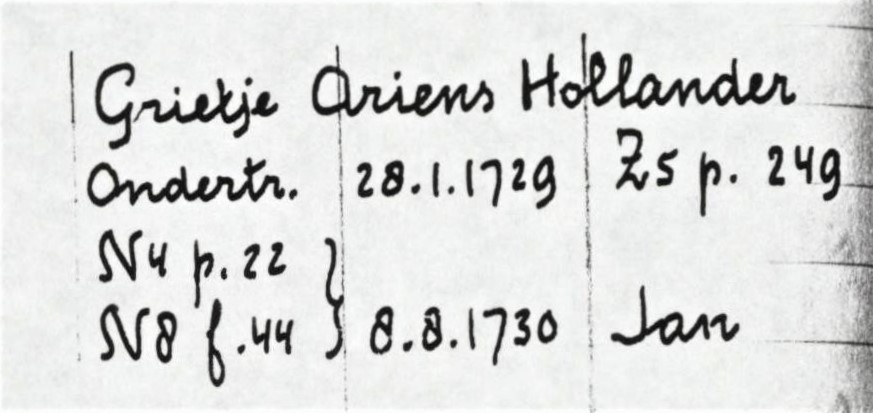 Grietje Ariens Hollander
Ondertr. 28.1.1729 Z5 p. 249
N4 p. 22 }
N8 f. 44 } 8.8.1730 Jan